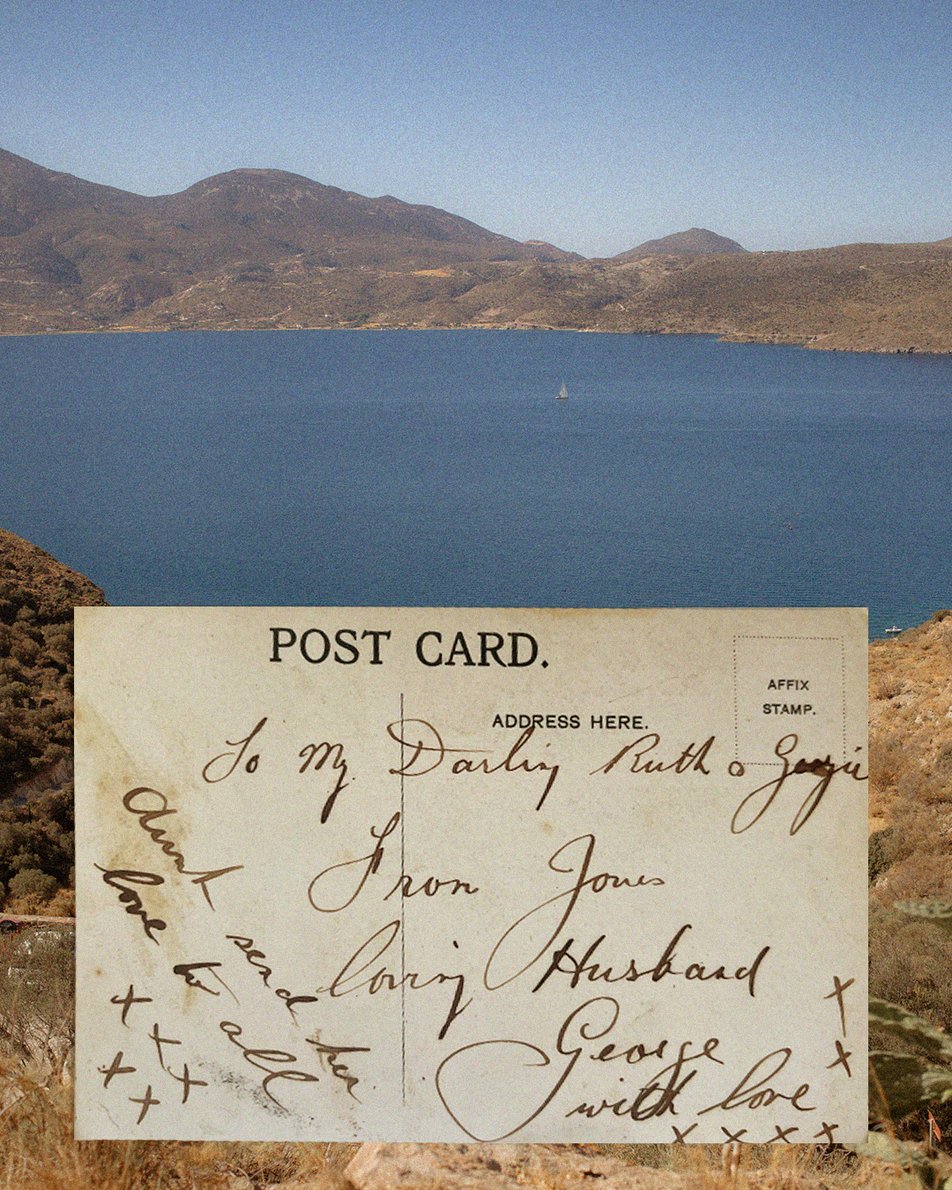 POST CARD.
AFFIX
STAMP.
ADDRESS HERE.
To My Darling Ruth
From Jones
loving Husband
George
with love
x x x x
x
x
Aunt send her
love to all
x x x
x x